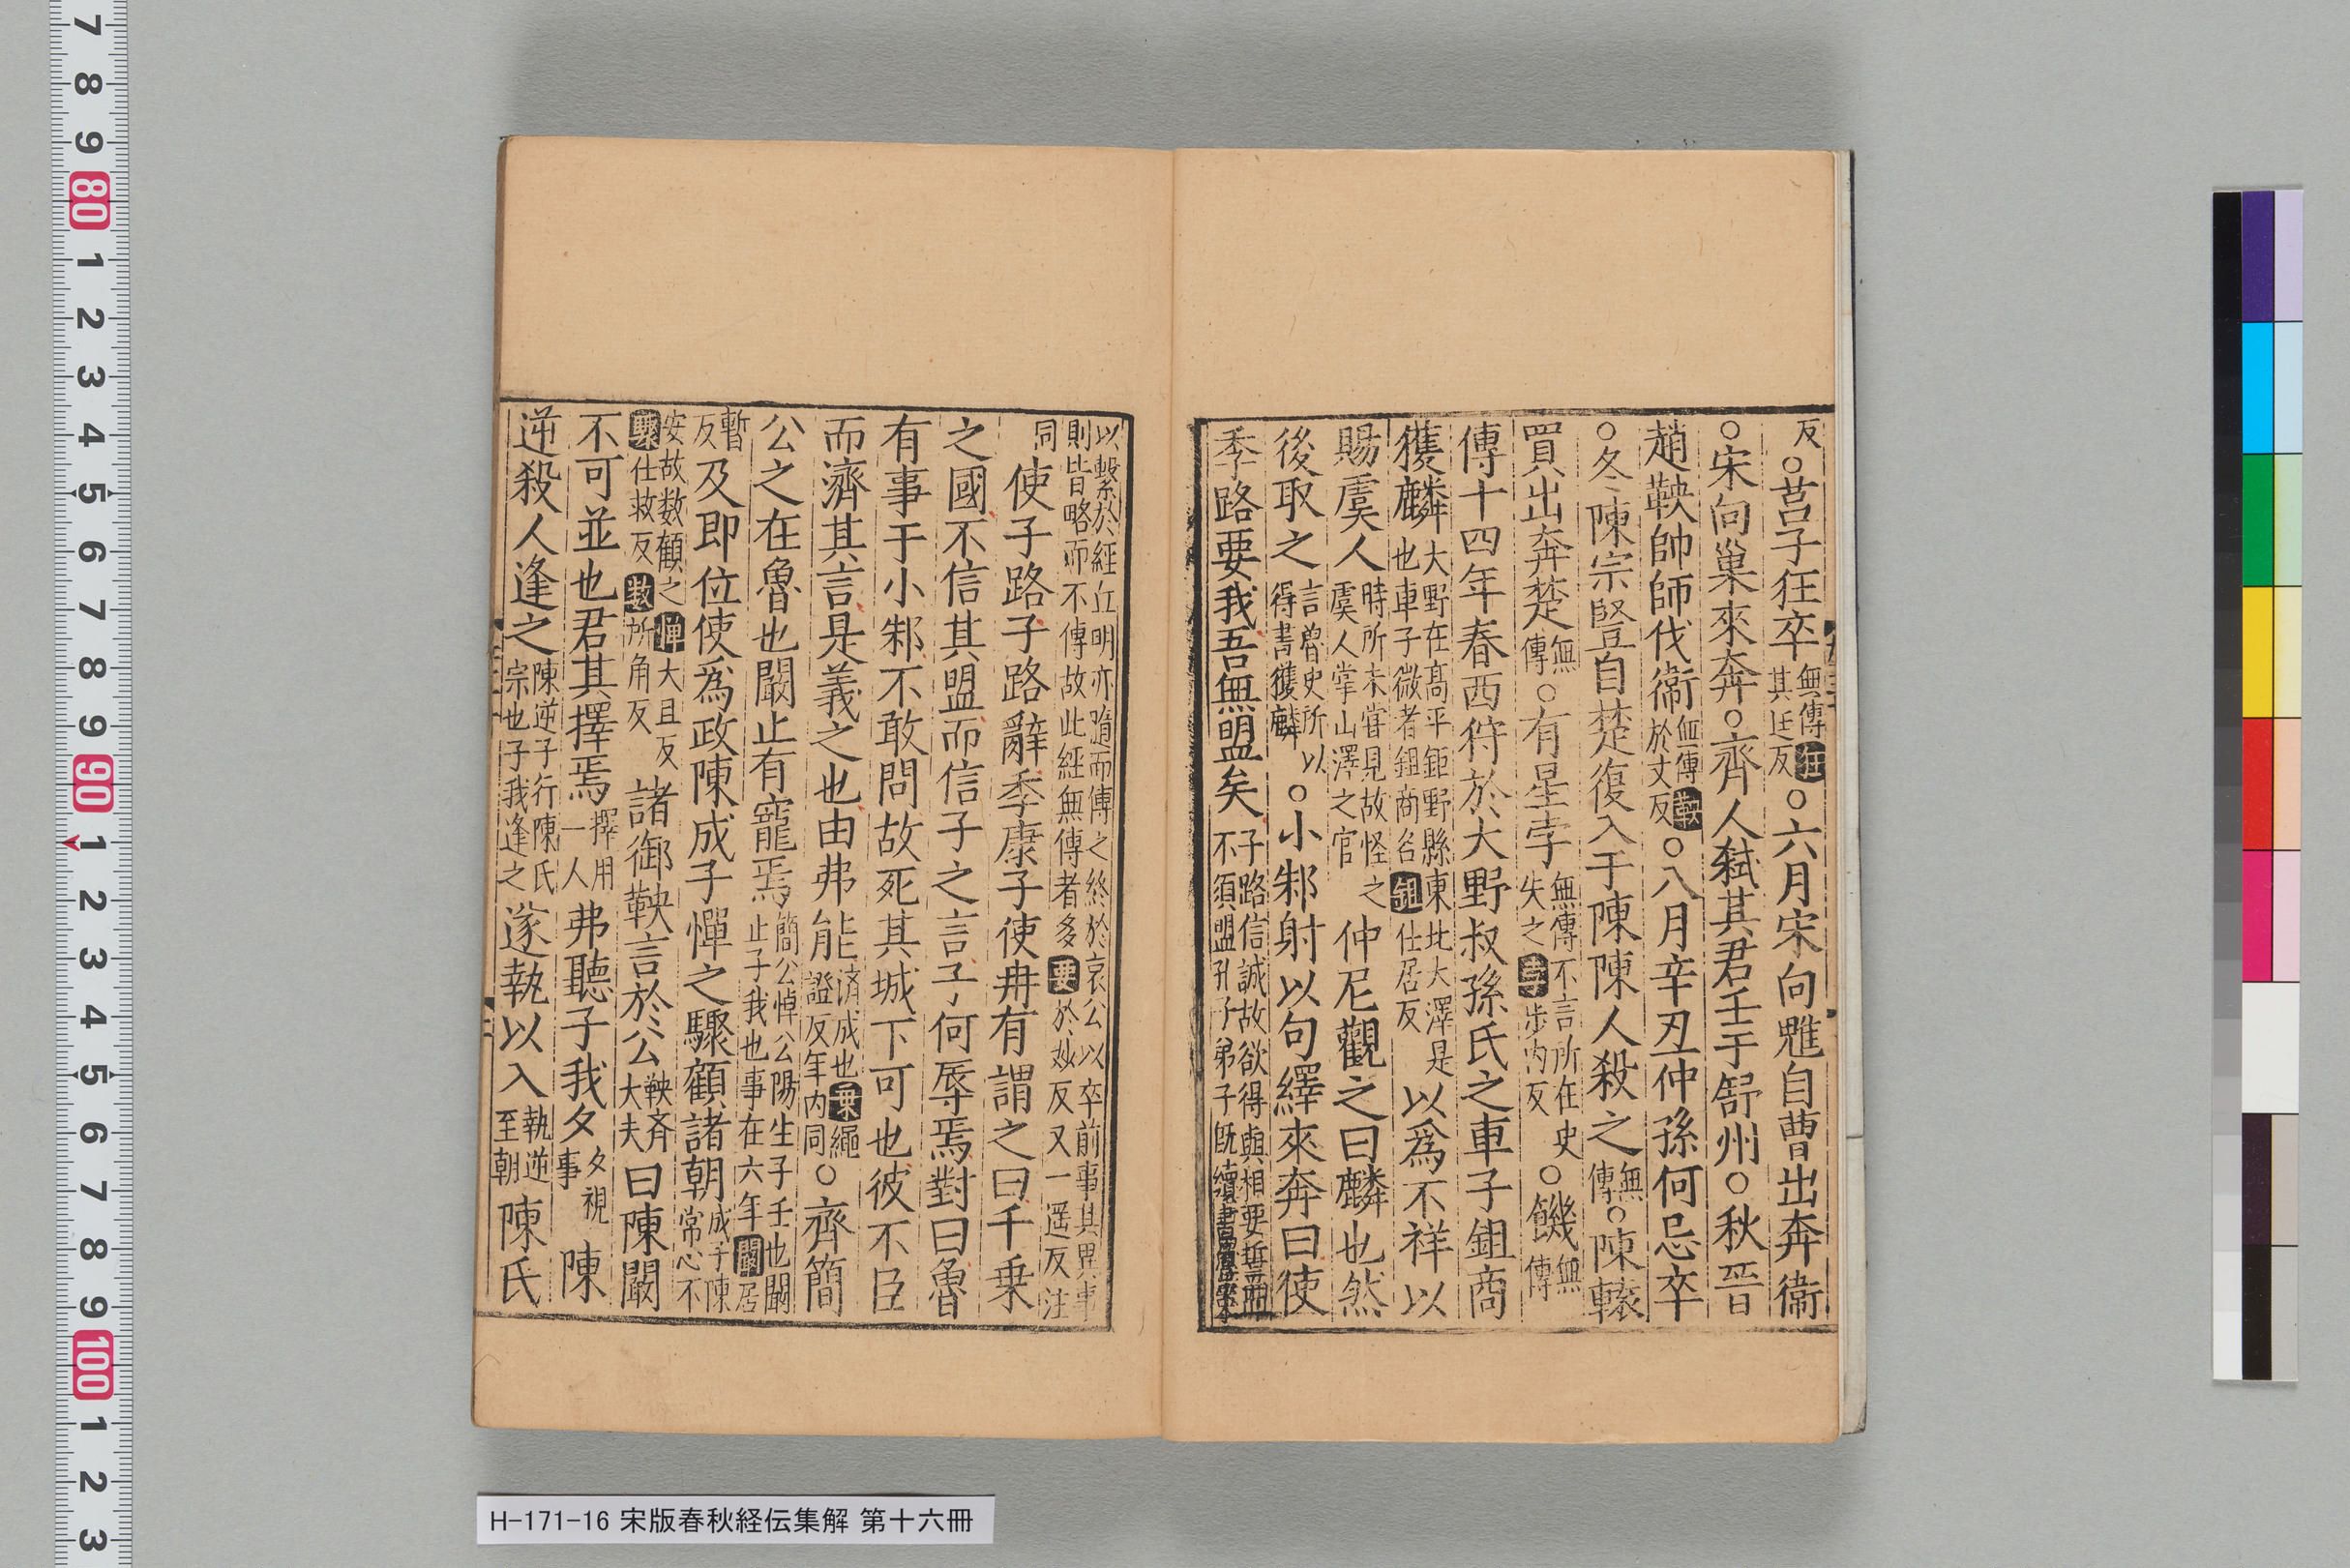 反○莒子狂卒無傳狂其廷反○六月宋向魋自曹出奔衞
○宋向巢來奔○齊人弑其君壬于舒州○秋晉
趙鞅帥師伐衞無傳鞅於丈反○八月辛丑仲孫何忌卒
○冬陳宗豎自楚復入于陳陳人殺之無傳○陳轅
買出奔楚無傳○有星孛無傳不言所在史失之孛步內反○饑無傳
傳十四年春西狩於大野叔孫氏之車子鉏商
獲麟大野在高平鉅野縣東北大澤是也車子微者鉏商名鉏仕居反以爲不祥以
賜虞人時所未嘗見故怪之虞人掌山澤之官仲尼觀之曰麟也然
後取之言魯史所以得書獲麟○小邾射以句繹來奔曰使
季路要我吾無盟矣子路信誠故欲得與相要誓而不須盟孔子弟子旣續書魯策
以繫於經丘明亦隨而傳之終於哀公以卒前事其異事則皆略而不傳故此經無傳者多要於妙反又一遥反注
同使子路子路辭季康子使冉有謂之曰千乗
之國不信其盟而信子之言子何辱焉對曰魯
有事于小邾不敢問故死其城下可也彼不臣
而濟其言是義之也由弗能濟成也乗繩證反年內同○齊簡
公之在魯也闞止有寵焉簡公悼公陽生子壬也闞止子我也事在六年闞居
暫反及即位使爲政陳成子憚之驟顧諸朝成子陳常心不
安故数顧之憚大且反驟仕救反数所角反諸御鞅言於公鞅齊大夫曰陳闞
不可並也君其擇焉擇用一人弗聽子我夕夕視事陳
逆殺人逢之陳逆子行陳氏宗也子我逢之遂執以入執逆至朝陳氏
H-171-16 宋版春秋経伝集解 第十六冊
7 8 9 80 1 2 3 4 5 6 7 8 9 90 1 2 3 4 5 6 7 8 9 100 1 2 3